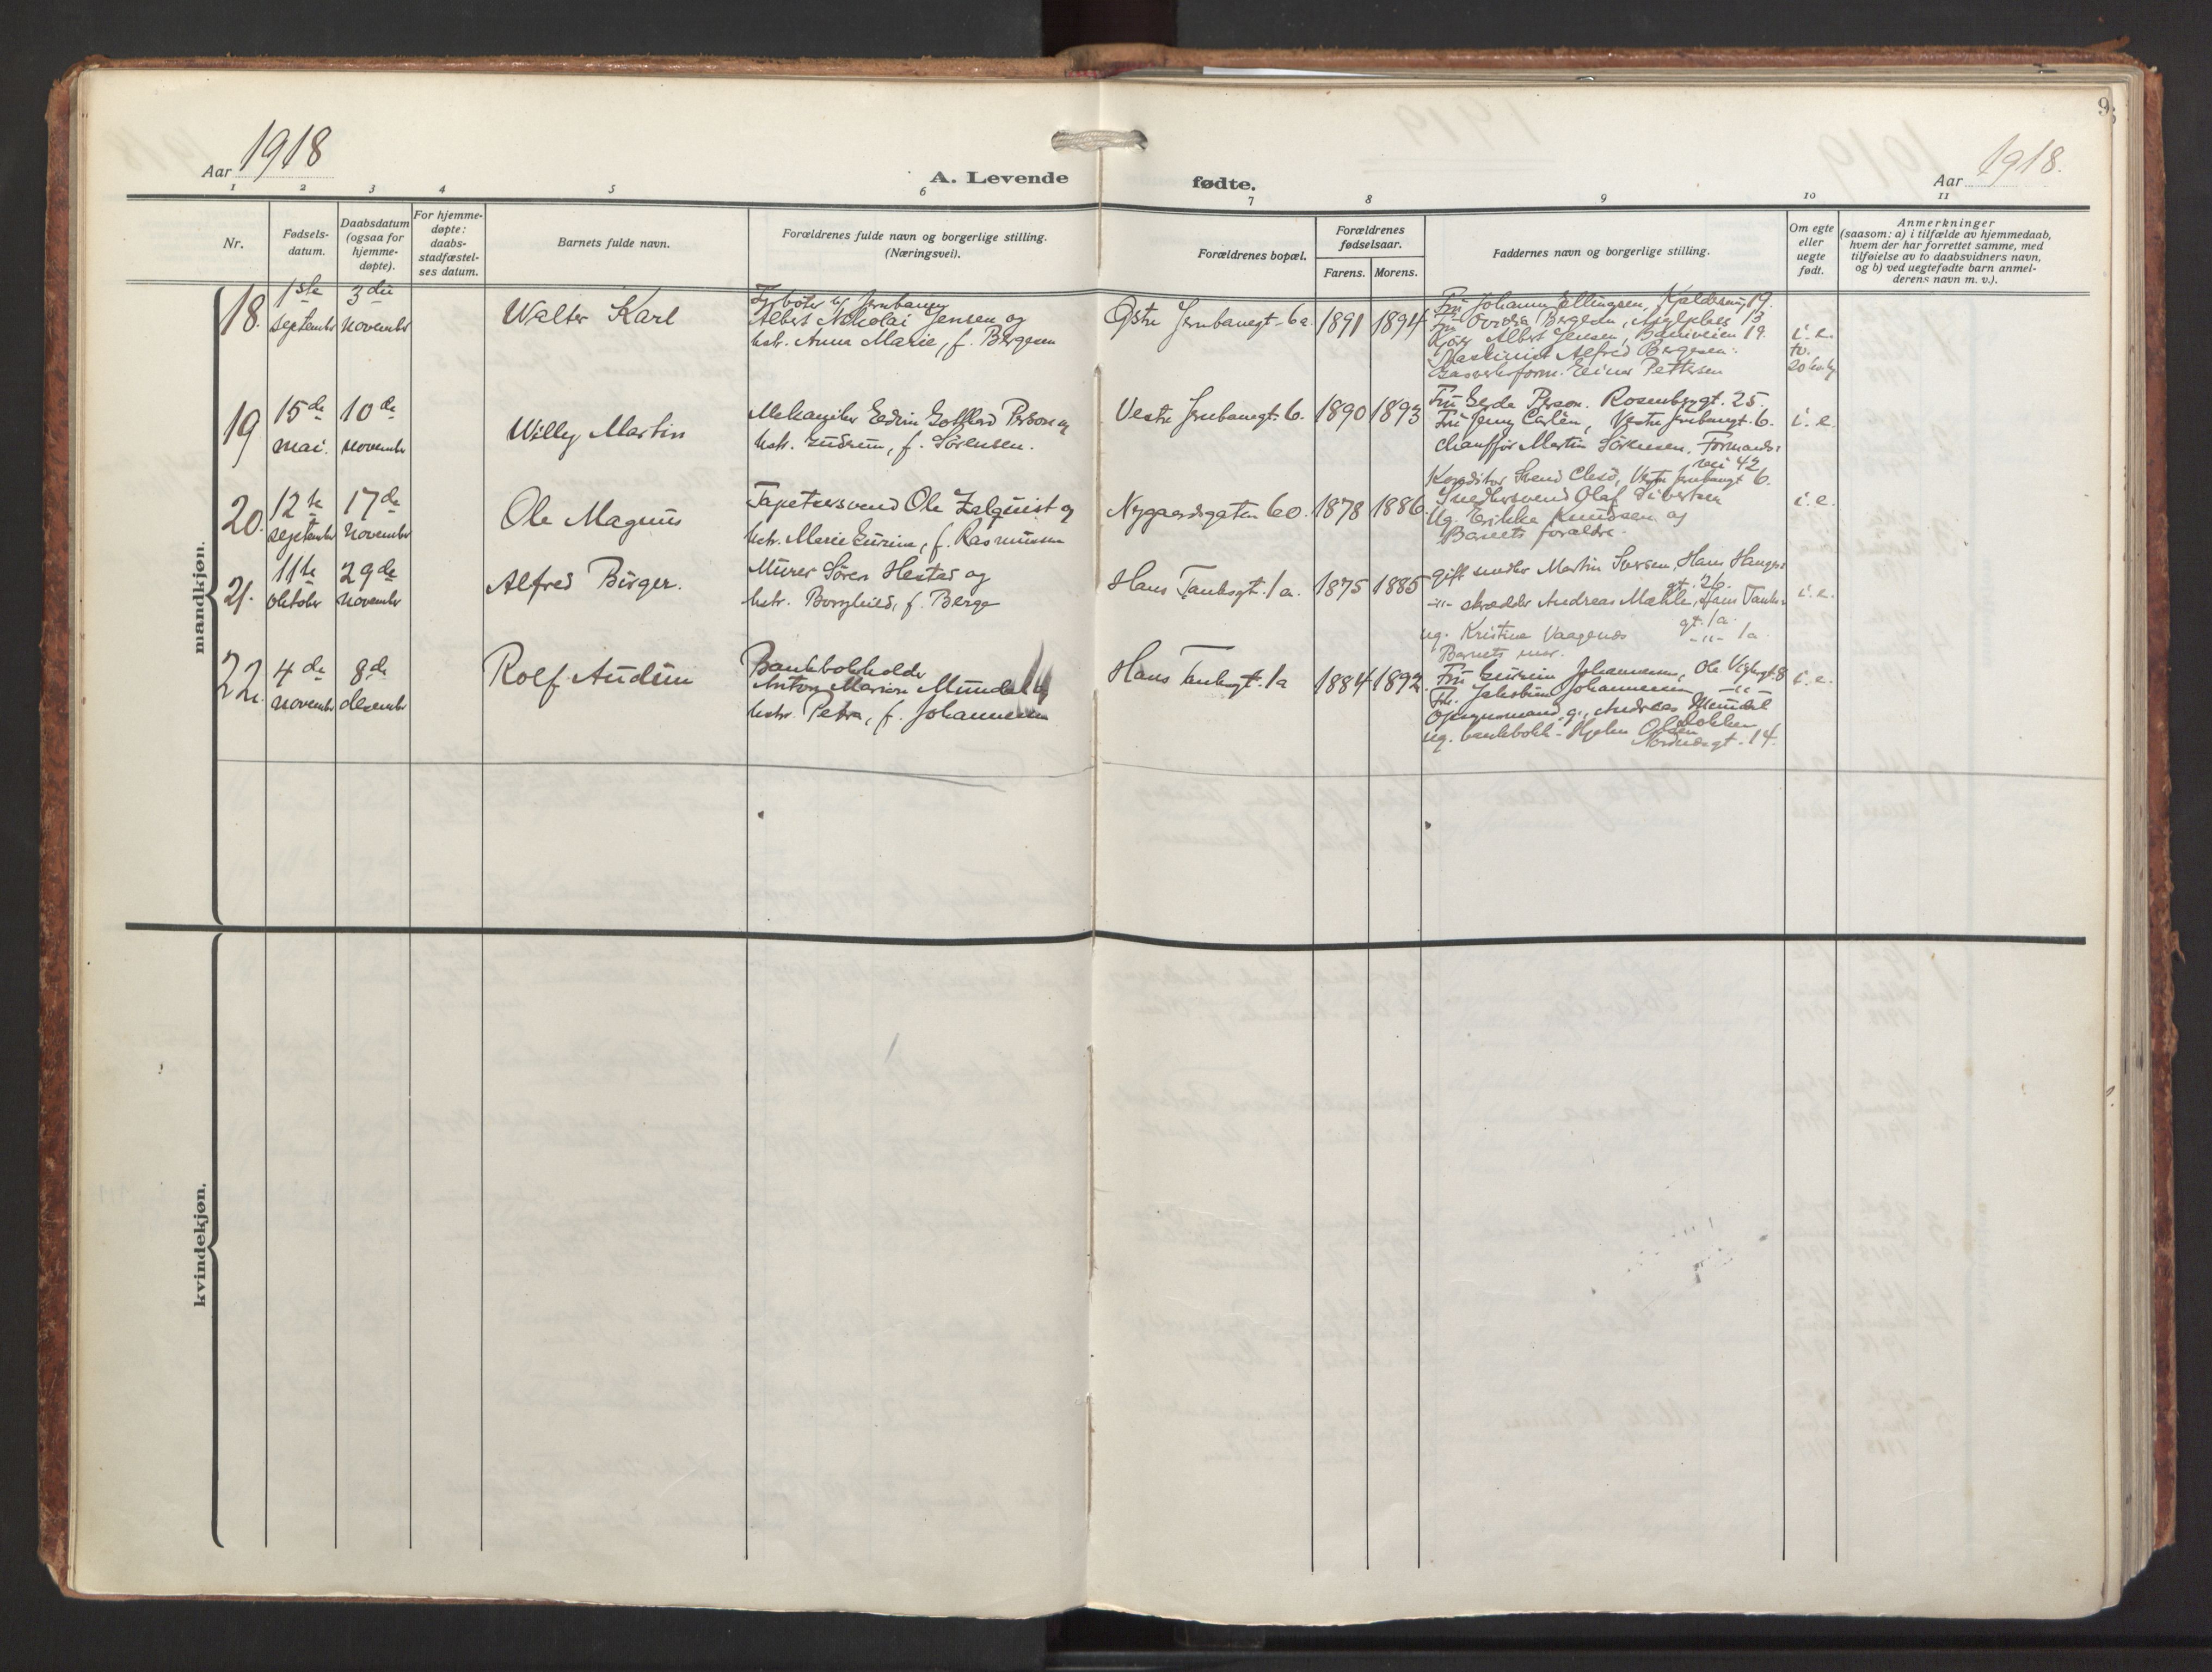 9
Aar 1918
A. Levende fødte.
Aar 1918.
1 2 3 4 5 6 7 8 9 10 11
Nr.
Fødsels-
datum.
Daabsdatum
(ogsaa for
hjemme-
døpte).
For hjemme-
døpte:
daabs-
stadfæstel-
ses datum.
Barnets fulde navn.
Forældrenes fulde navn og borgerlige stilling.
(Næringsvei).
Forældrenes bopæl.
Forældrenes
fødselsaar.
Farens. Morens.
Faddernes navn og borgerlige stilling.
Om egte
eller
uegte
født.
Anmerkninger
(saasom: a) i tilfælde av hjemmedaab,
hvem der har forrettet samme, med
tilføielse av to daabsvidners navn,
og b) ved uegtefødte barn anmel-
derens navn m. v.).
mandkjøn.
18.
1ste
september
3die
november
Walter Karl
Fyrbøter v/ Jernbanen
Albert Nikolai Jensen og
hstr. Anna Marie, f. Bergesen
Østre Jernbanegt. 6a
1891
1894
Fru Johanna Ellingsen, 19.
Fru Bergesen, 13
Albert Jensen, 19.
Maskinist Alfred Bergesen.
Gasverksform. Einar Pettersen
i. e.
19
15de
mai.
10de
november
Willy Martin
Mekaniker Edvin Gotthard Person og
hstr. Gudrun, f. Sørensen.
Vestre Jernbanegt. 6.
1890
1893
Fru Gerda Person. Rosenbergt. 25.
Fru Jenny Carlén, Vestre Jernbanegt. 6.
chauffør Martin Sörensen, Formands-
vei 42
Konditor Svend Vestre Jernbanegt 6.
i. e.
20.
12te
september
17de
november
Ole Magnus
Tapetsersvend Ole Zalquist og
hstr. Marie Gurine, f. Rasmussen
Nygaardsgaten 60.
1878
1886.
Snedkersvend Olaf Sivertsen
Ug. Erikka Knudsen og
Barnets forældre.
i. e.
21.
11te
oktober
29de
november
Alfred Birger.
Murer Sören Hestad og
hstr. Borghild, f. Berge
Hans Tanksgt. 1a.
1875
1885
gift smeller Martin Iversen, Hans Hauges
gt. 26.
-"- skrædder Andreas Mæhle, Hans Tanks
gt. 1a.
ug. Kristine Vaagenes -"- 1a
Barnets mor.
i. e.
22.
4de
november
8de
desember
Rolf Audun
Bankbokholder
Anton Marion Mundal og
hstr. Petra, f. Johannessen
Hans Tanksgt. 1a
1884
1892.
Fru Gurine Johannessen, Ole Vigsgt. 8
Frk. Jakobine Johannessen -"-
Opsynsmand g., Andreas Mundal
Dokken
ug. bankbokh. Hjelm Olsen
Nordnesgt. 14.
i. e.
kvindekjøn.